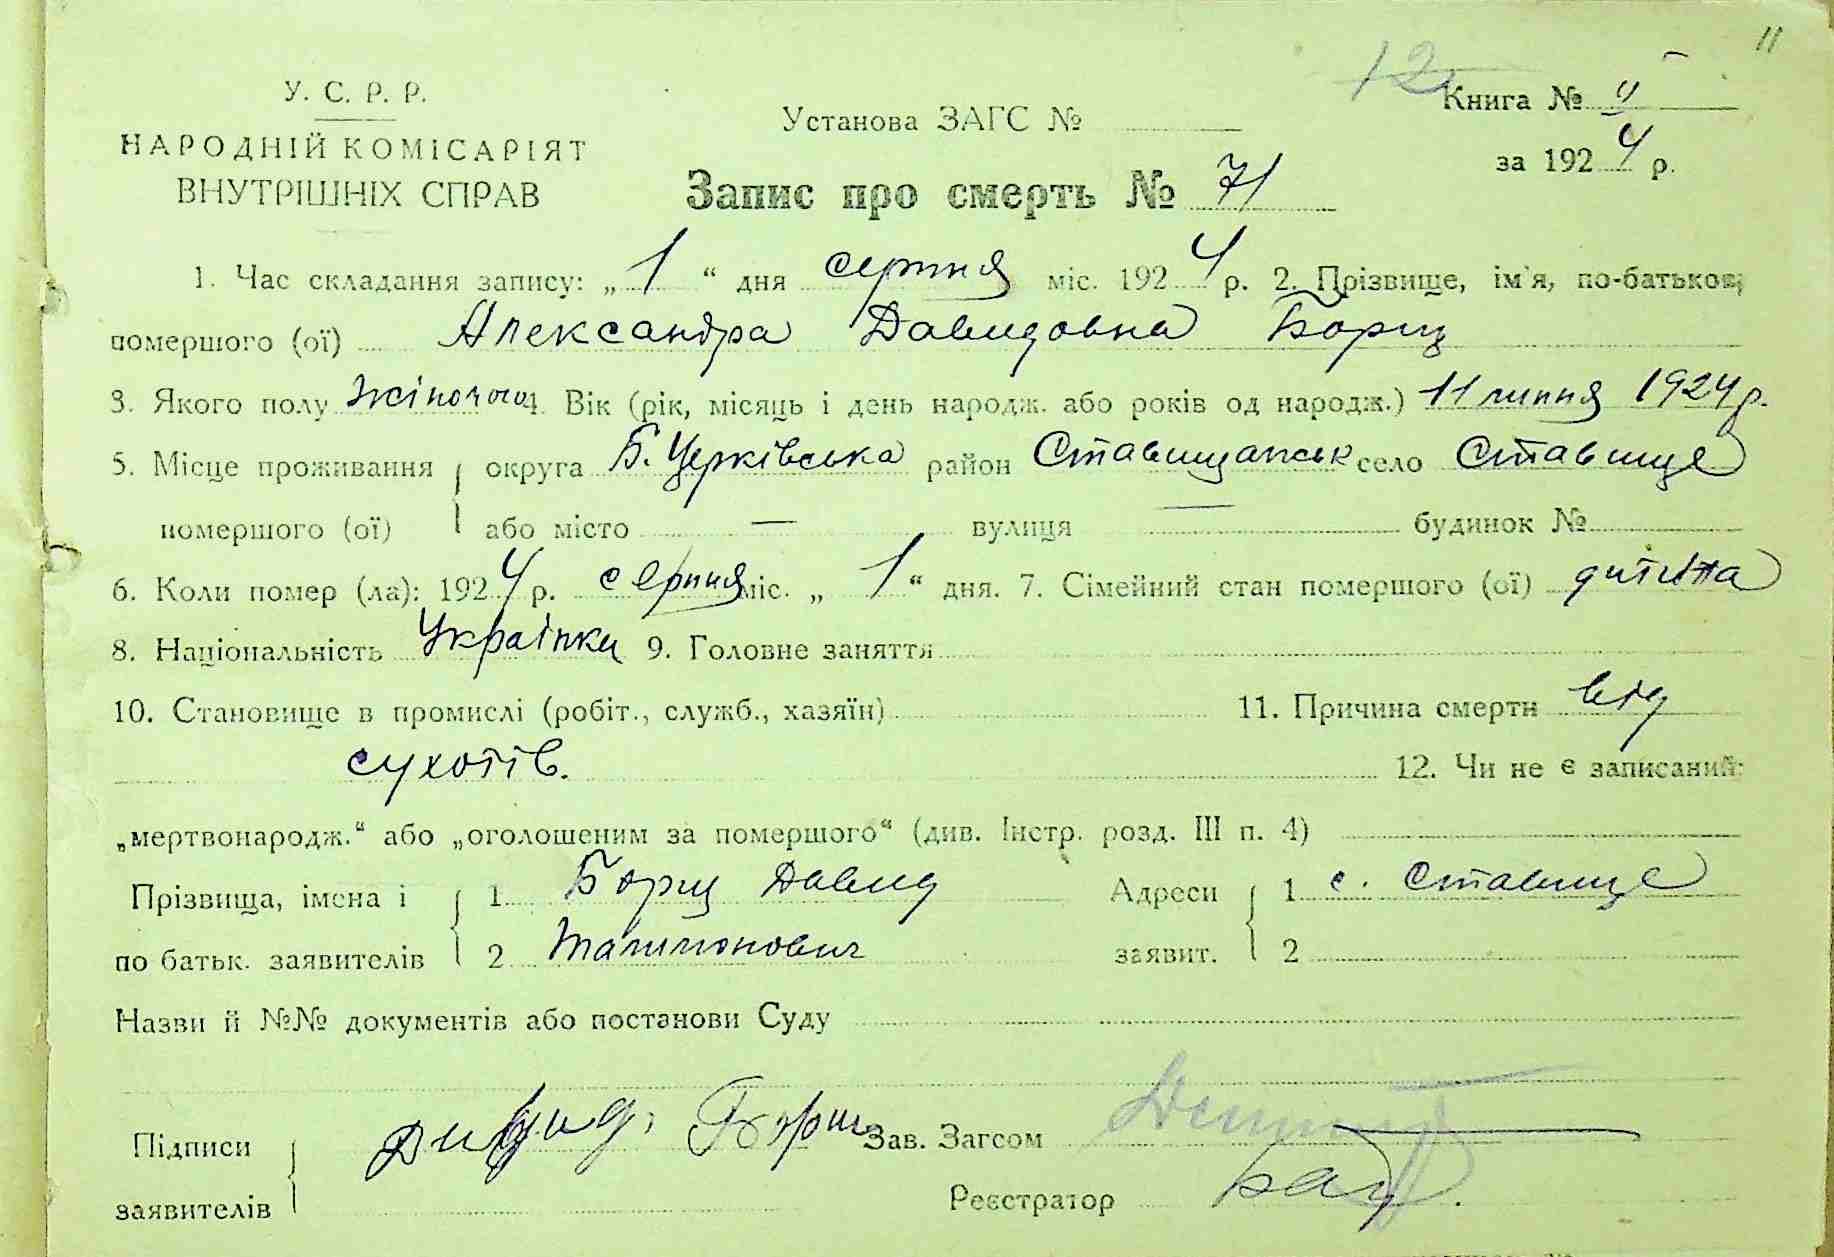 11
12
У. С. Р. Р.
НАРОДНІЙ КОМІСАРІЯТ
ВНУТРІШНІХ СПРАВ
Установа ЗАГС №
Книга № II
за 1924 р.
Запис про смерть № 71
1. Час складання запису: „1“ дня серпня міс. 1924 р. 2. Прізвище, ім'я, по-батькові
помершого (ої) Александра Давидовна Борщ
3. Якого полу жіночого 4. Вік (рік, місяць і день народж. або років од народж.) 11 липня 1924 р.
5. Місце проживання округа Б. Церківська район Ставищанськ село Ставище
помершого (ої) або місто — вулиця — будинок №
6. Коли помер (ла): 1924 р. серпня міс. „1“ дня. 7. Сімейний стан помершого (ої) дитина
8. Національність Українка 9. Головне заняття
10. Становище в промислі (робіт., служб., хазяїн) 11. Причина смерти від
сухотів. 12. Чи не є записаний:
„мертвонародж.“ або „оголошеним за помершого“ (див. Інстр. розд. III п. 4)
Прізвища, імена і 1. Борщ Давид Адреси 1 с. Ставище
по батьк. заявителів 2 Талимонович заявит. 2
Назви й №№ документів або постанови Суду
Підписи Борщ Зав. Загсом
заявителів Реєстратор